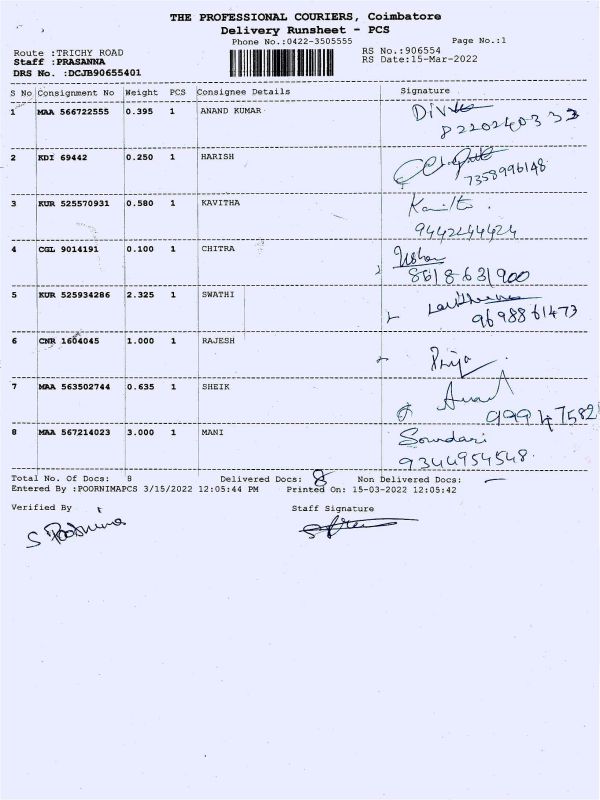 THE PROFESSIONAL COURIERS, Coimbatore
Delivery Runsheet - PCS
Phone No.:0422-3505555 Page No.:1
Route :TRICHY ROAD RS No.:906554
Staff :PRASANNA RS Date:15-Mar-2022
DRS No. :DCJB90655401
S No Consignment No Weight PCS Consignee Details Signature
1 MAA 566722555 0.395 1 ANAND KUMAR Divya
8220240333
2 KDI 69442 0.250 1 HARISH
7358996148
3 KUR 525570931 0.580 1 KAVITHA
9442244424
4 CGL 9014191 0.100 1 CHITRA
8618631900
5 KUR 525934286 2.325 1 SWATHI
9698861473
6 CNR 1604045 1.000 1 RAJESH Priya
7 MAA 563502744 0.635 1 SHEIK
8 MAA 567214023 3.000 1 MANI Soundari
9344954548
Total No. Of Docs: 8 Delivered Docs: 8 Non Delivered Docs: —
Entered By :POORNIMAPCS 3/15/2022 12:05:44 PM Printed On: 15-03-2022 12:05:42
Verified By Staff Signature
S Poornima